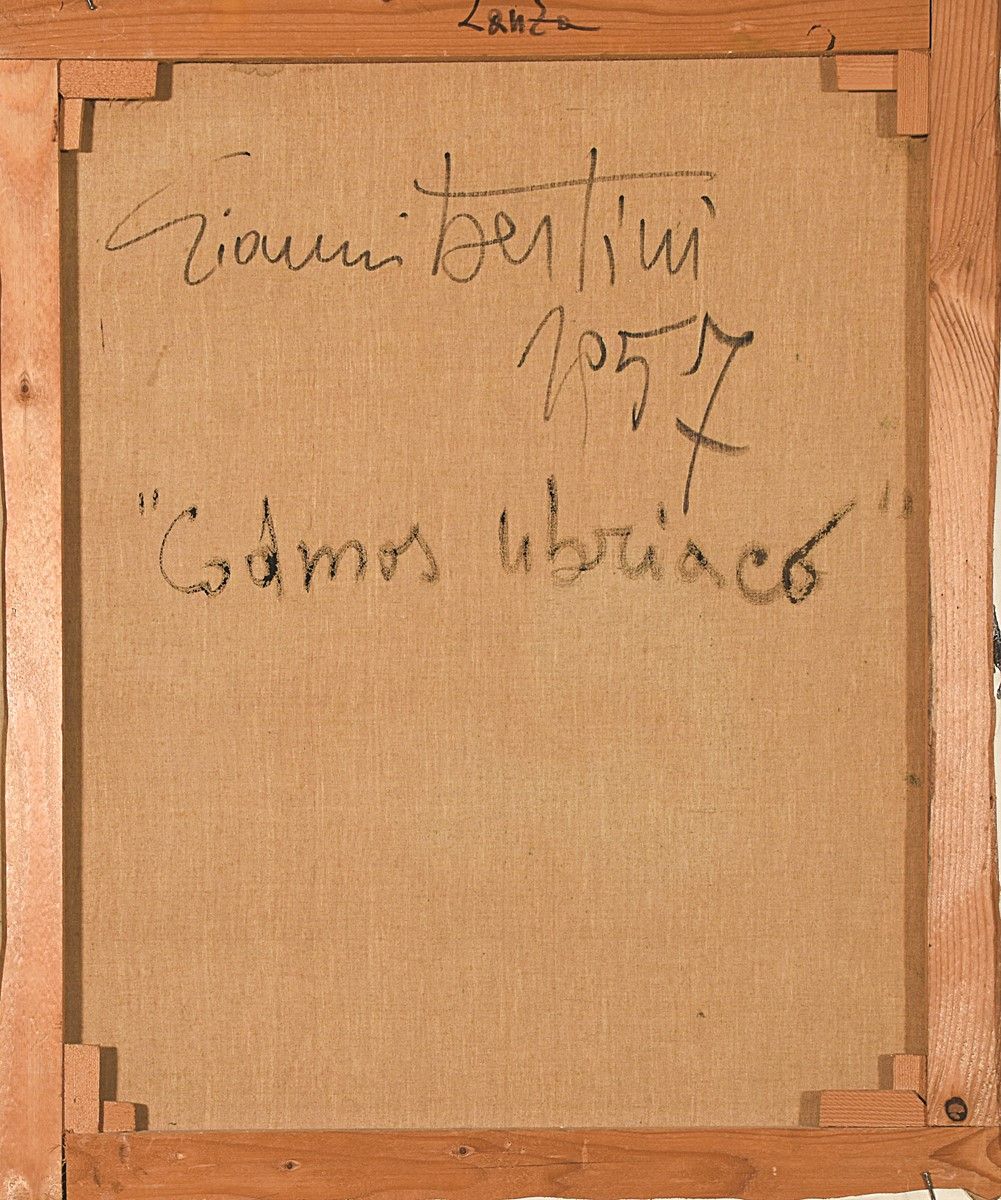 Lanza
Gianni Bertini
1957
"Cadmos Ubriaco"